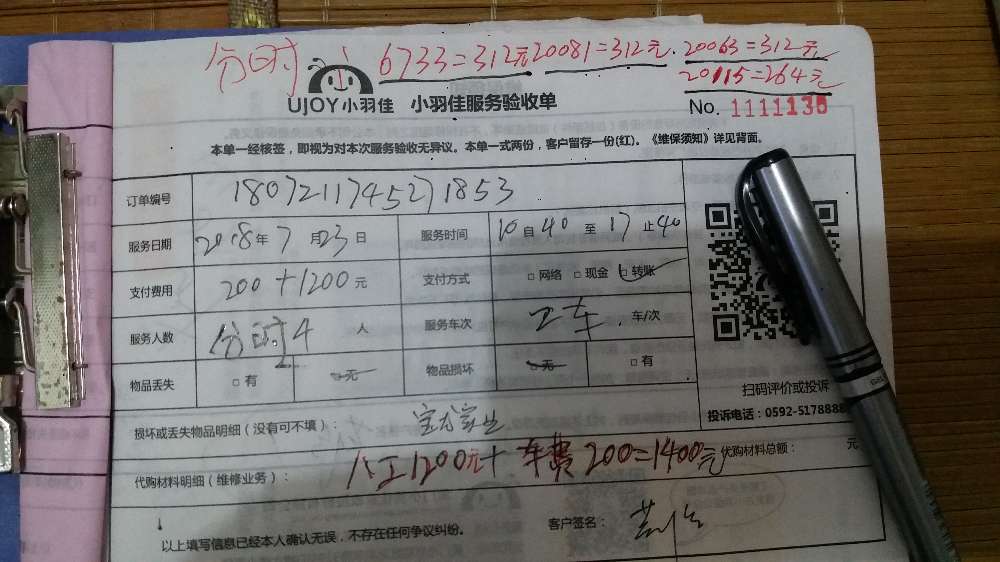 分时 6733=312元 20081=312元. 20063=312元
20115=264元
UJOY小羽佳 小羽佳服务验收单
No. 1111136
本单一经核签，即视为对本次服务验收无异议。本单一式两份，客户留存一份(红)。《维保须知》详见背面。
订单编号 1807211745271853
服务日期 2018年7月23日 服务时间 10自40至17止40
支付费用 200+1200元 支付方式 □网络 □现金 □转账
服务人数 分时4人 服务车次 2车.车/次
物品丢失 □有 □无 物品损坏 □无 □有
扫码评价或投诉
投诉电话：0592-5178888
损坏或丢失物品明细（没有可不填）：
代购材料明细（维修业务）： 人工1200元+车费200=1400元 代购材料总额： 元
以上填写信息已经本人确认无误，不存在任何争议纠纷。 客户签名：